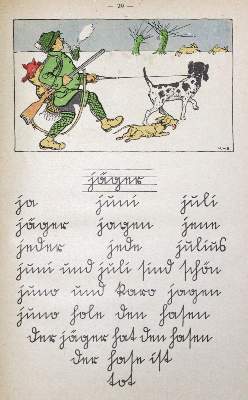 - 29 -
jäger
ja juni juli
jäger jagen jene
jeder jede julius
juni und juli sind schön
juno und karo jagen
juno hole den hasen
der jäger hat den hasen
der hase ist
tot